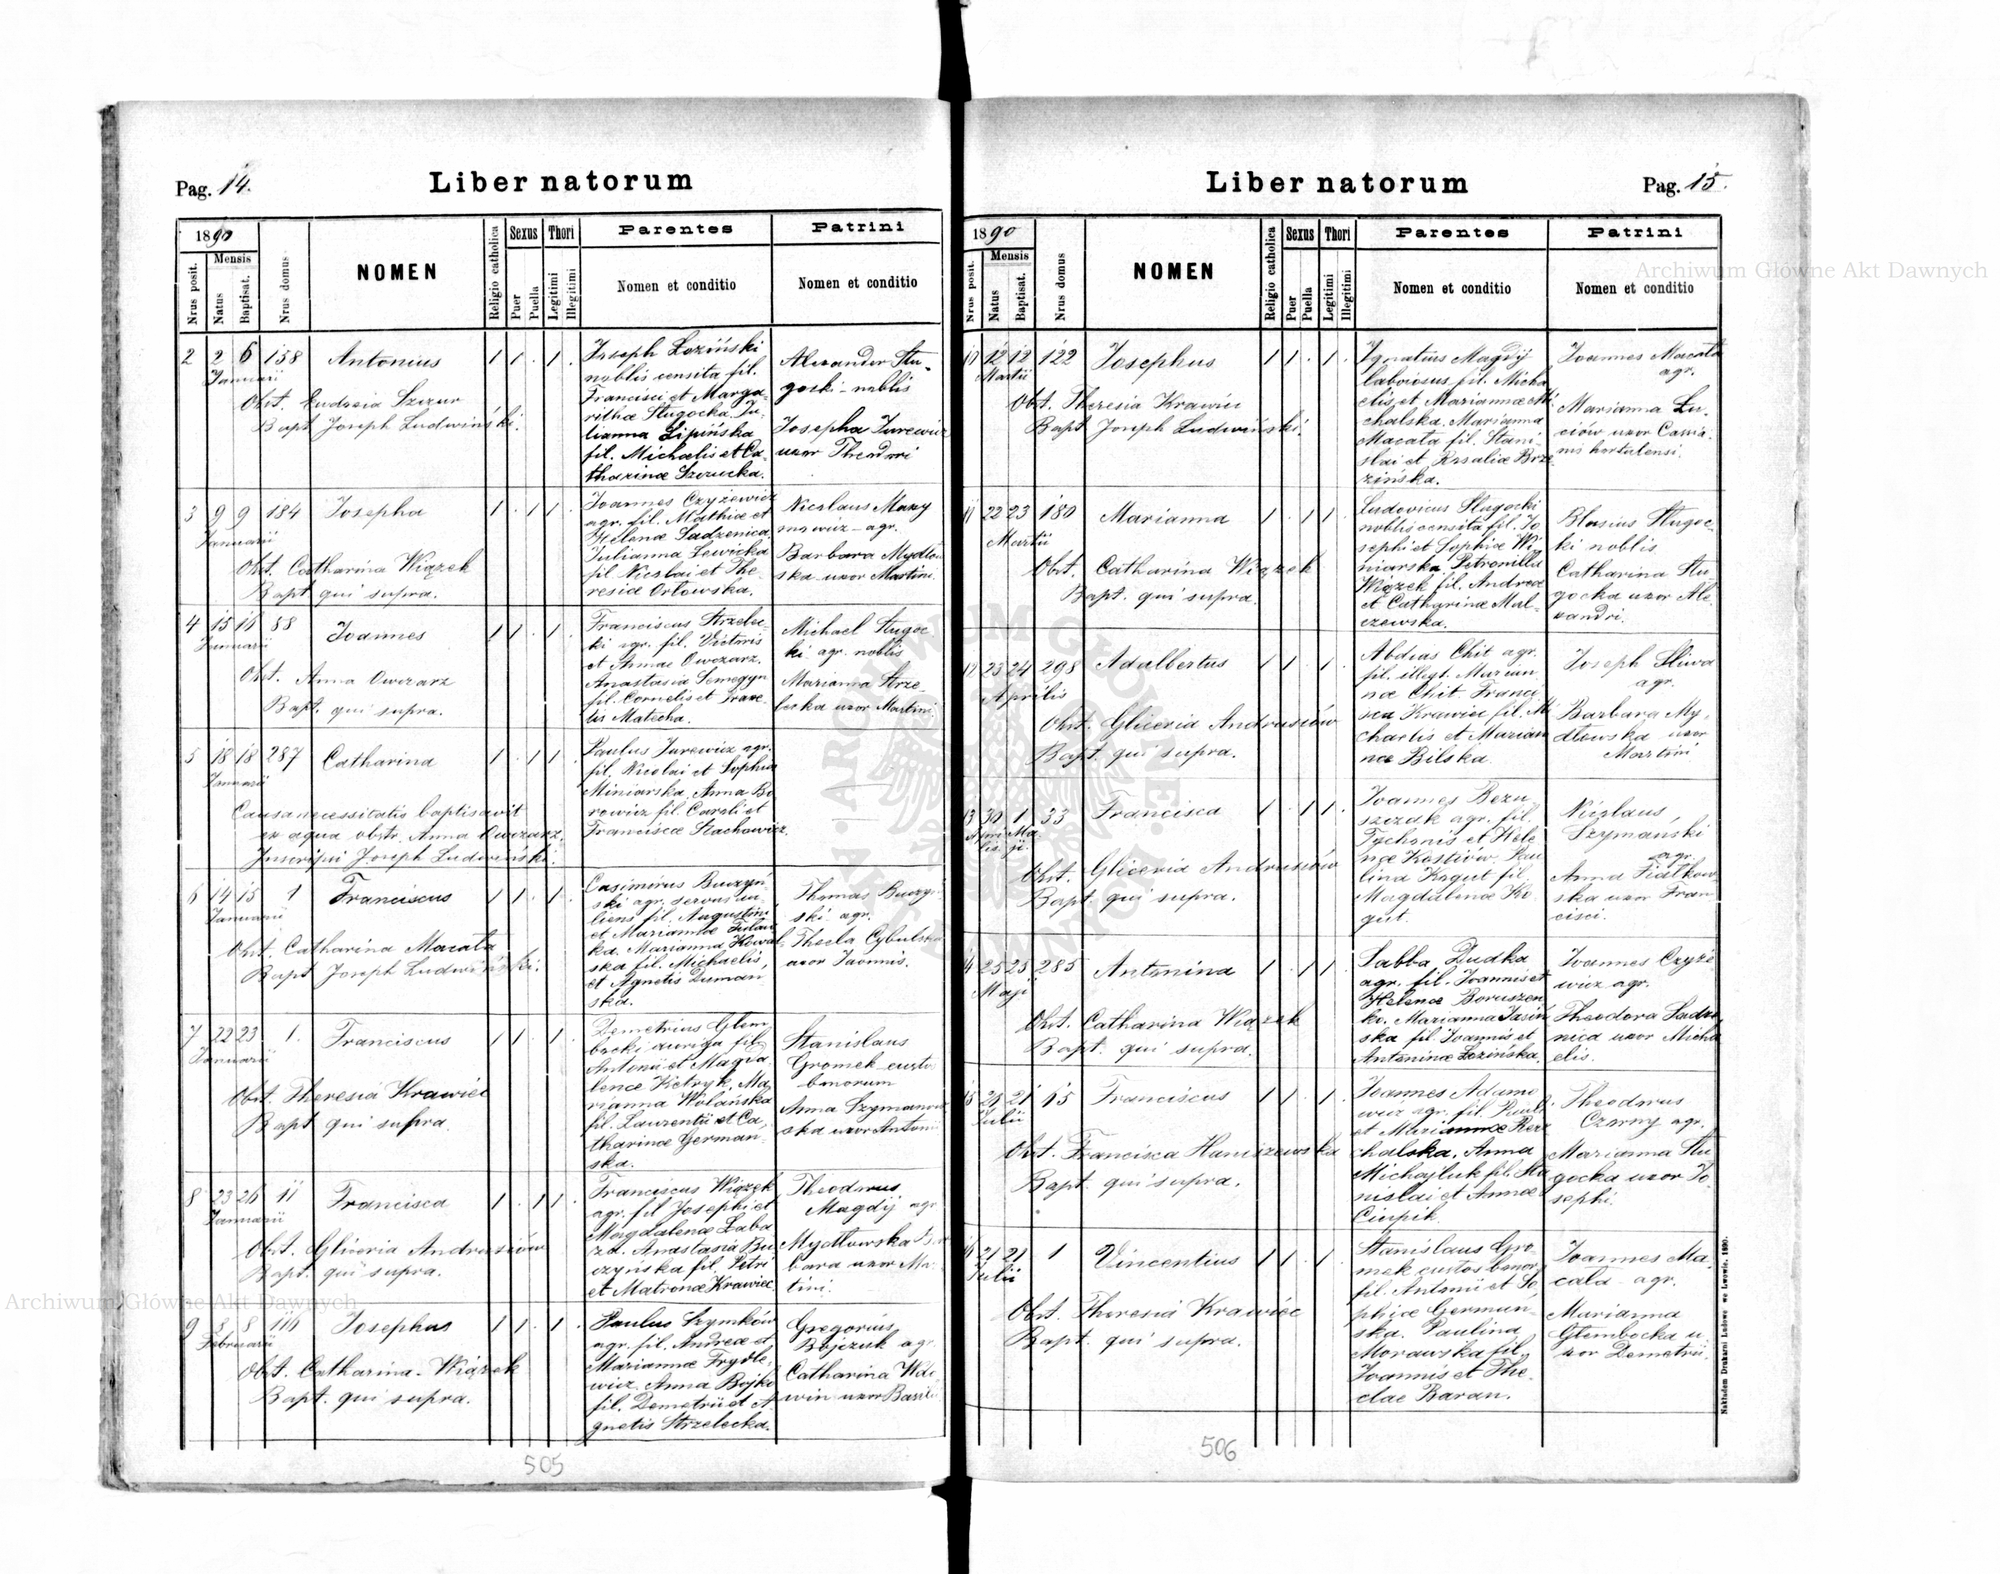 Pag. 14.
Liber natorum
1890
Mensis
Nrus posit.
Natus
Baptisat.
Nrus domus
NOMEN
Religio catholica
Sexus
Puer
Puella
Thori
Legitimi
Illegitimi
Parentes
Nomen et conditio
Patrini
Nomen et conditio
2 2 6 158 Antonius 1 1 . 1 .
Januarii
Obst. Eudosia Szczur
Bapt. Joseph Ludwiński.
Joseph Łoziński
nobilis censita fil.
Francisci et Marga-
rithae Sługocka. Ju-
lianna Lipińska
fil. Michaelis et Ca-
tharinae Szczucka.
Alexander Słu-
gocki - nobilis
Josepha Jurewicz
uxor Theodori
3 9 9 184 Josepha 1 . 1 1 .
Januarii
Obst. Catharina Wiązek
Bapt. qui supra.
Joannes Czyżewicz
agr. fil. Mathiae et
Helenae Sadzenica
Julianna Lewicka
fil. Nicolai et The-
resiae Orłowska.
Nicolaus Mazy
mowicz - agr.
Barbara Mydłow
ska uxor Martini.
4 15 16 88 Joannes 1 1 . 1 .
Januarii
Obst. Anna Owczarz
Bapt. qui supra.
Franciscus Strzelec-
ki agr. fil. Victoris
et Annae Owczarz.
Anastasia Semegyn
fil. Cornelis et Paxe-
lis Matecha.
Michael Sługoc
ki agr. nobilis
Marianna Strze-
lecka uxor Martini.
5 18 18 287 Catharina 1 . 1 1 .
Januarii
Causa necessitatis baptisavit
ex aqua obstr. Anna Owczarz.
Inscripsi Joseph Ludwiński.
Paulus Jurewicz agr.
fil. Nicolai et Sophiae
Miniarska. Anna Bo
rowicz fil. Caroli et
Franciscae Stachowicz.
6 14 15 1 Franciscus 1 1 . 1 .
Januarii
Obst. Catharina Macała
Bapt. Joseph Ludwiński.
Casimirus Buczyń-
ski agr. servus mi-
liens fil. Augustini
et Mariannae
ka. Marianna Kowal
ska fil. Michaelis
et Agnetis Duman
ska.
Thomas Buczyń-
ski - agr.
Thecla Cybulska
uxor Joannis.
7 22 23 1. Franciscus 1 1 . 1 .
Januarii
Obst. Theresia Krawiec
Bapt. qui supra
Demetrius Głem
bocki auriga fil.
Antonii et Magda
lenae Kotryk. Ma
rianna Wolańska
fil. Laurentii et Ca
tharinae German-
ska.
Stanislaus
Gromek custo
bonorum
Anna Szymanow
ska uxor Antonii
8 23 26 11 Francisca 1 . 1 1 .
Januarii
Obst. Gliceria Andrusiów
Bapt. qui supra.
Franciscus Wiązek
agr. fil. Josephi et
Magdalenae Łaba
zd. Anastasia Bu
czyńska fil. Petri
et Matronae Krawiec.
Theodorus
Magdij agr
Mydłowska Bar
bara uxor Mar
tini.
9 8 8 116 Josephus 1 1 . 1 .
Februarii
Obst. Catharina Wiązek
Bapt. qui supra.
Paulus Szymków
agr. fil. Andreae et
Mariannae Frydle-
wicz. Anna Bojko
fil. Demetrii et A-
gnetis Strzelecka.
Gregorius
Bojczuk agr.
Catharina Wdo
win uxor Basilii
505
Liber natorum
Pag. 15.
1890
Mensis
Nrus posit.
Natus
Baptisat.
Nrus domus
NOMEN
Religio catholica
Sexus
Puer
Puella
Thori
Legitimi
Illegitimi
Parentes
Nomen et conditio
Patrini
Nomen et conditio
10 12 12 122 Josephus 1 1 . 1 .
Martii
Obst. Theresia Krawiec
Bapt. Joseph Ludwiński.
Ignatius Magdij
laboiosus fil. Micha
elis et Mariannae Mi
chalska. Marianna
Macała fil. Stani-
slai et Rosaliae Brze
zińska.
Joannes Macała
agr.
Marianna Łu-
ciów uxor Cassia
ni hortulensi.
11 22 23 180 Marianna 1 . 1 1 .
Martii
Obst. Catharina Wiązek
Bapt. qui supra.
Ludovicus Sługocki
nobilis censita fil. Jo
sephi et Sophiae Mi-
niarska. Petronilla
Wiązek fil. Andreae
et Catharinae Mal-
czewska.
Blasius Sługoc-
ki nobilis
Catharina Słu-
gocka uxor Ale-
xandri.
12 23 24 298 Adalbertus 1 1 . 1
Aprilis
Obst. Gliceria Andrusiów
Bapt. qui supra.
Abdias Chit agr.
fil. illegt. Marian
nae Chit. Franci-
sca Krawiec fil. Mi
chaelis et Marian
nae Bilska.
Joseph Śliwa
agr.
Barbara My-
dłowska uxor
Martini
13 30 1 33 Francisca 1 . 1 1 .
Apri Ma
lis ji
Obst. Gliceria Andrusiów
Bapt. qui supra.
Joannes Bezu
szczak agr. fil.
Tychonis et Hele-
nae Kostiów. Pau
lina Kogut fil.
Magdalenae Ko-
gut.
Nicolaus
Szymański
agr.
Anna Fiałkow
ska uxor Fran-
cisci.
14 25 25 285 Antonina 1 . 1 1 .
Maji
Obst. Catharina Wiązek
Bapt. qui supra.
Sabba Dudka
agr. fil. Joannis et
Helenae Boruszen
ko. Marianna Jasiń
ska fil. Joannis et
Antoninae Łozińska.
Joannes Czyże-
wicz agr.
Theodora Sadze
nica uxor Micha
elis.
15 21 21 15 Franciscus 1 1 . 1 .
Julii
Obst. Francisca Haniszewska
Bapt. qui supra.
Joannes Adamo
wicz agr. fil. Pauli
et Mariannae
chalska. Anna
Michajluk fil. Sta
nislai et Annae
Cierpik.
Theodorus
Czarny agr.
Marianna Słu
gocka uxor Jo-
sephi.
16 21 21 1 Vincentius 1 1 . 1 .
Julii
Obst. Theresia Krawiec
Bapt. qui supra.
Stanislaus Gro-
mek custos bonor.
fil. Antonii et So
phiae German-
ska. Paulina
Morawska fil.
Joannis et The-
clae Baran.
Joannes Ma-
cała - agr.
Marianna
Głembocka u-
xor Demetrii.
Nakładem Drukarni Ludowej we Lwowie. 1890.
506
Archiwum Główne Akt Dawnych
Archiwum Główne Akt Dawnych
ARCHIWUM GŁÓWNE AKT DAWNYCH